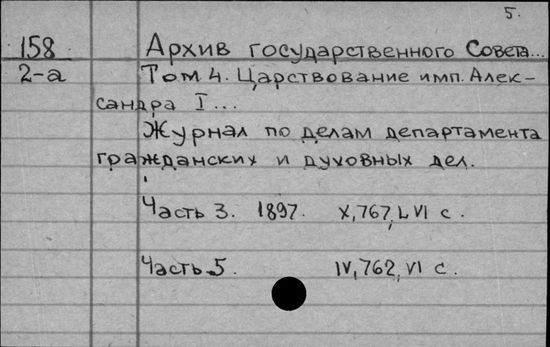 5.
158 Архив государственного Совета...
2-а Том 4. Царствование имп. Алек-
сандра I...
Журнал по делам департамента
гражданских и духовных дел.
Часть 3. 1897. X, 767, LVI с.
Часть 5. IV, 762, VI с.